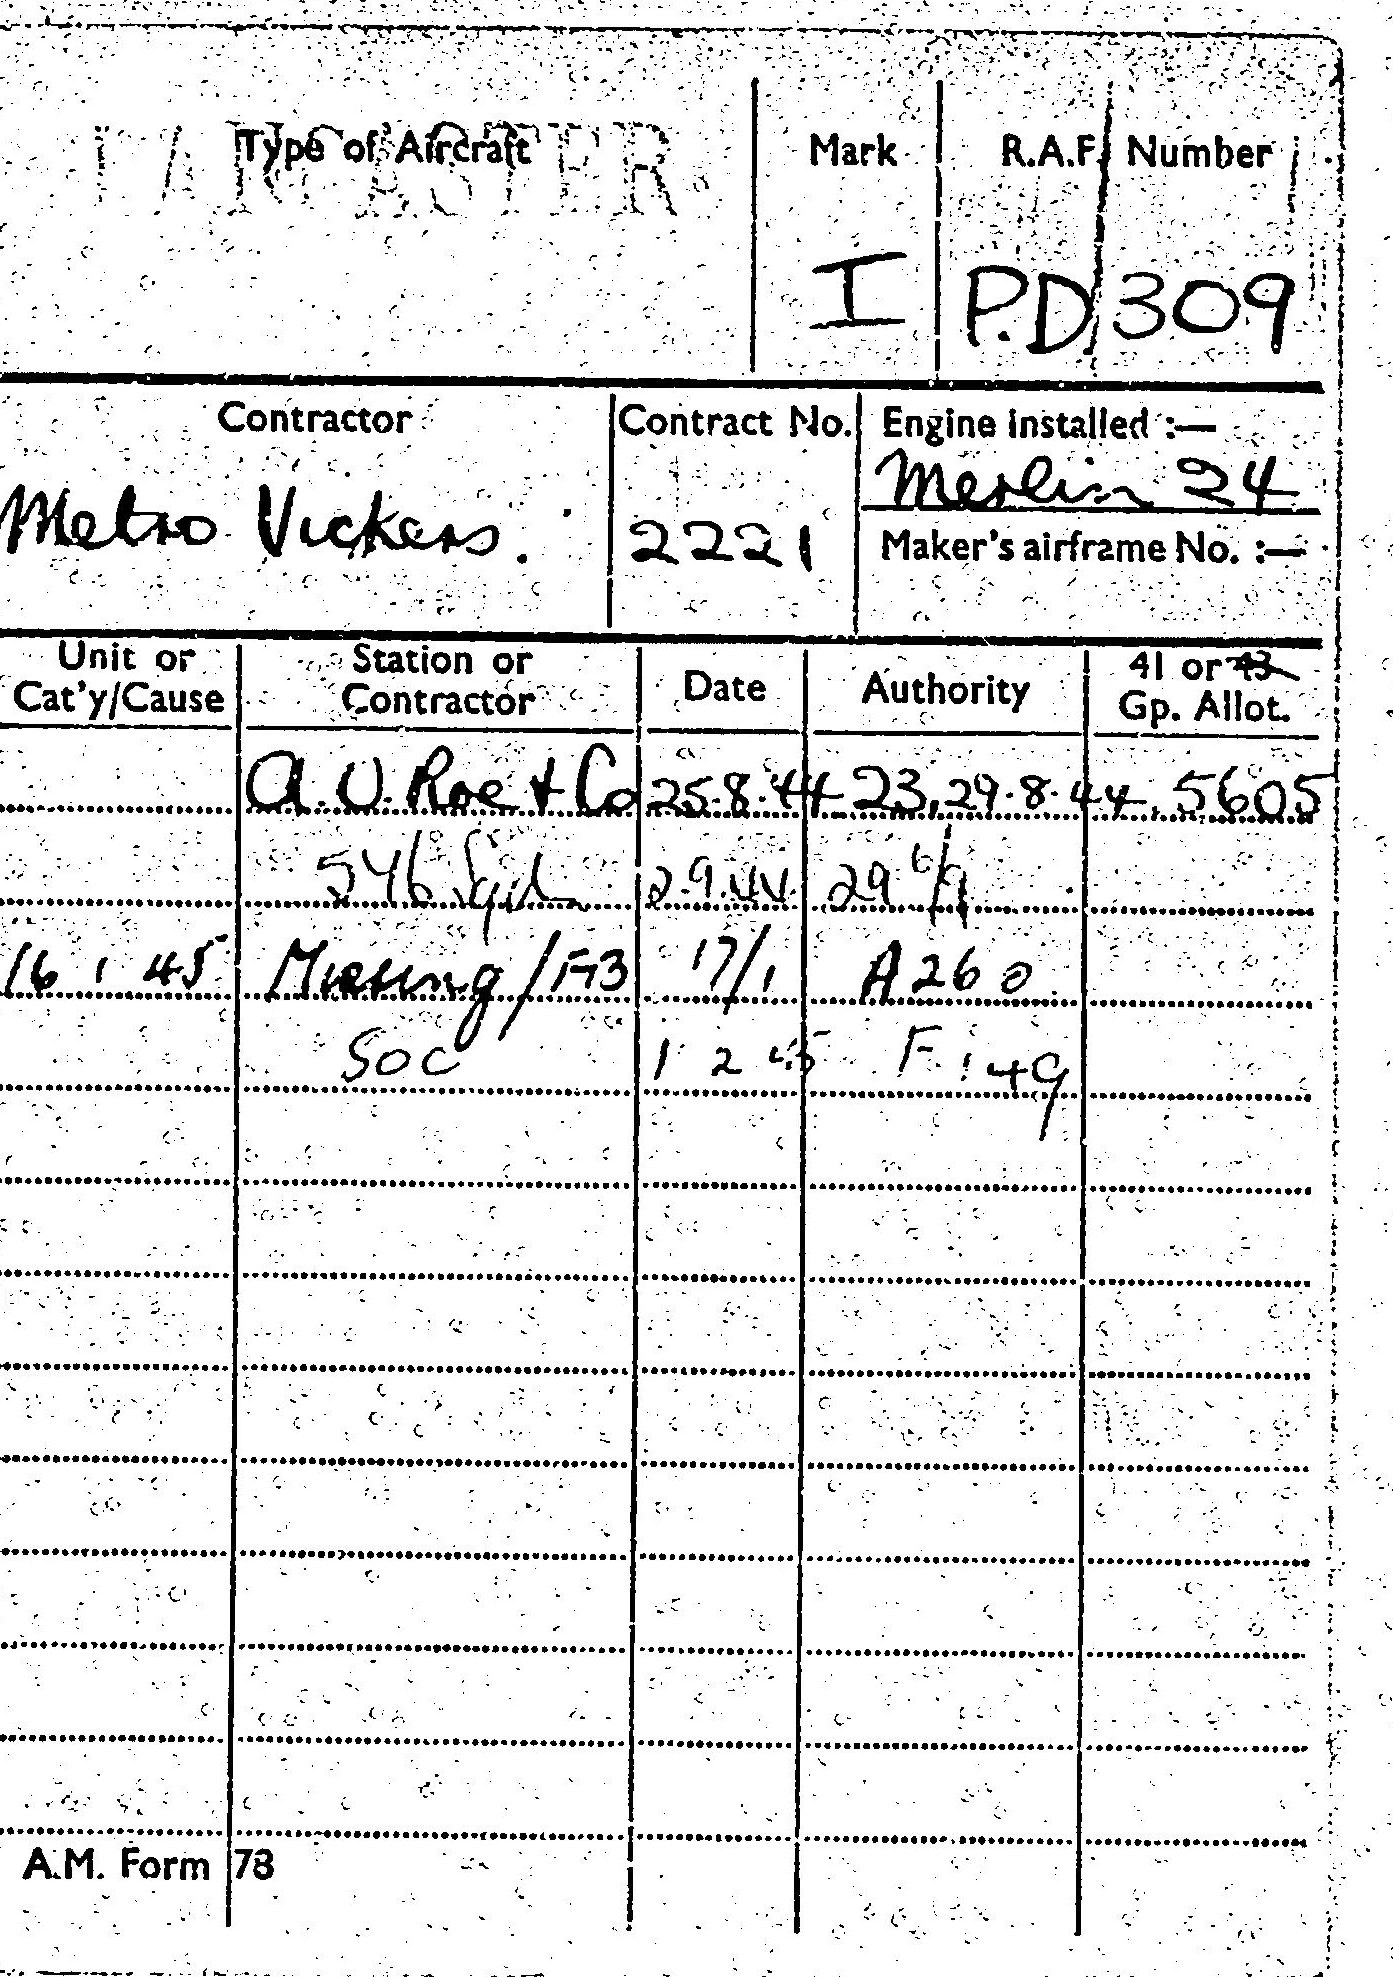 LANCASTER
Type of Aircraft Mark R.A.F. Number
I P.D 309
Contractor Contract No. Engine installed :—
Metro Vickers. 2221 Merlin 24
Maker's airframe No. :—
Unit or Cat'y/Cause Station or Contractor Date Authority 41 or 43 Gp. Allot.
A.V. Roe & Co 25.8.44 23, 29.8.44 5605
Sqdn 2.9.44 29 6/9
16 1 45 Missing/FB 17/1 A260
SOC 1 2 45 F 149
A.M. Form 78